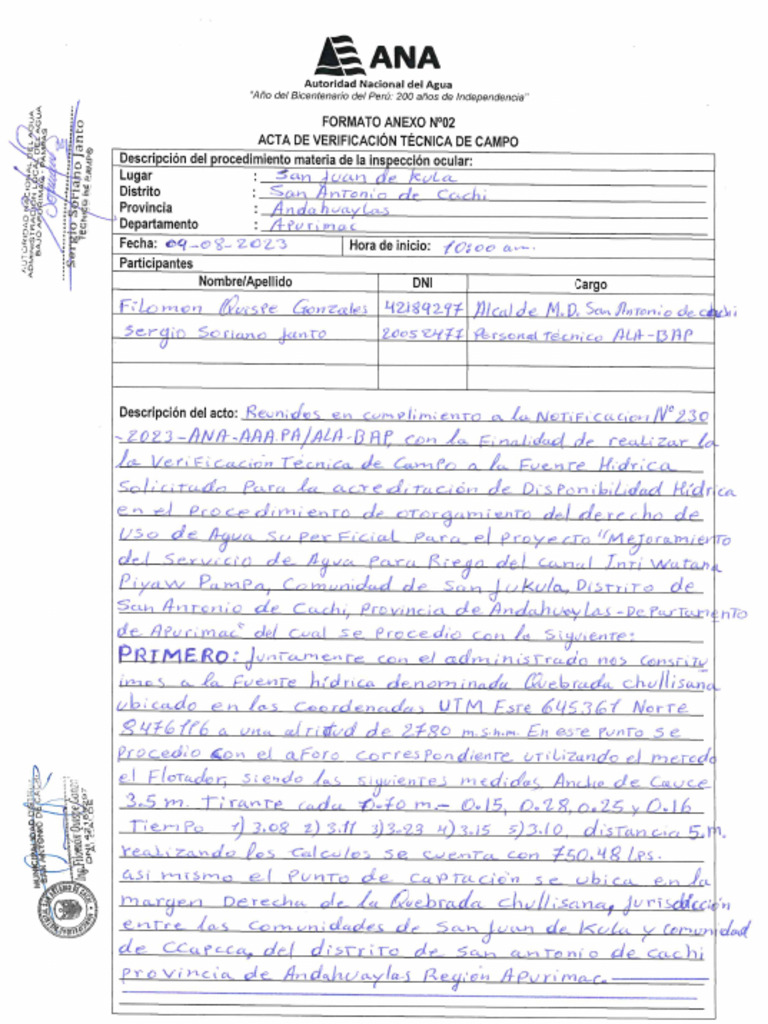 ANA
Autoridad Nacional del Agua
"Año del Bicentenario del Perú: 200 años de Independencia"
FORMATO ANEXO Nº02
ACTA DE VERIFICACIÓN TÉCNICA DE CAMPO
Descripción del procedimiento materia de la inspección ocular:
Lugar : San Juan de Kula
Distrito : San Antonio de Cachi
Provincia : Andahuaylas
Departamento : Apurimac
Fecha: 09-08-2023 Hora de inicio: 10:00 am.
Participantes
Nombre/Apellido DNI Cargo
Filomon Quispe Gonzales 42189297 Alcalde M.D. San Antonio de cachi
Sergio Soriano Janto 20052477 Personal Técnico ALA-BAP
Descripción del acto: Reunidos en cumplimiento a la Notificacion Nº 230
-2023-ANA-AAA.PA/ALA-BAP, con la Finalidad de realizar la
la Verificación Técnica de Campo a la Fuente Hidrica
Solicitado Para la acreditación de Disponibilidad Hídrica
en el Procedimiento de otorgamiento del derecho de
Uso de Agua Superficial para el Proyecto "Mejoramiento
del Servicio de Agua para Riego del canal Inti Watana
Piyaw Pampa, Comunidad de San Jukula, Distrito de
San Antonio de Cachi, Provincia de Andahuaylas-Departamento
de Apurimac" del cual se procedio con lo Siguiente:
PRIMERO: Juntamente con el administrado nos constitu
imos a la Fuente hídrica denominada Quebrada chullisana
ubicado en las Coordenadas UTM Este 645361 Norte
8476116 a una altitud de 2780 m.s.n.m. En este Punto se
Procedio con el aforo correspondiente utilizando el metodo
el Flotador, siendo las siguientes medidas Ancho de Cauce
3.5 m. Tirante cada 0.70 m.- 0.15, 0.28, 0.25 y 0.16
Tiempo 1) 3.08 2) 3.11 3) 3.23 4) 3.15 5) 3.10, distancia 5 m.
realizando los Calculos se cuenta con 750.48 Lps.
asi mismo el Punto de Captación se ubica en la
margen Derecha de la Quebrada Chullisana, jurisdicción
entre las comunidades de San Juan de Kula y comunidad
de CCapcca, del distrito de San antonio de cachi
provincia de Andahuaylas Región Apurimac.
AUTORIDAD NACIONAL DEL AGUA
ADMINISTRACIÓN LOCAL DEL AGUA
BAJO APURIMAC - PAMPAS
Sergio Soriano Janto
TECNICO DE CAMPO